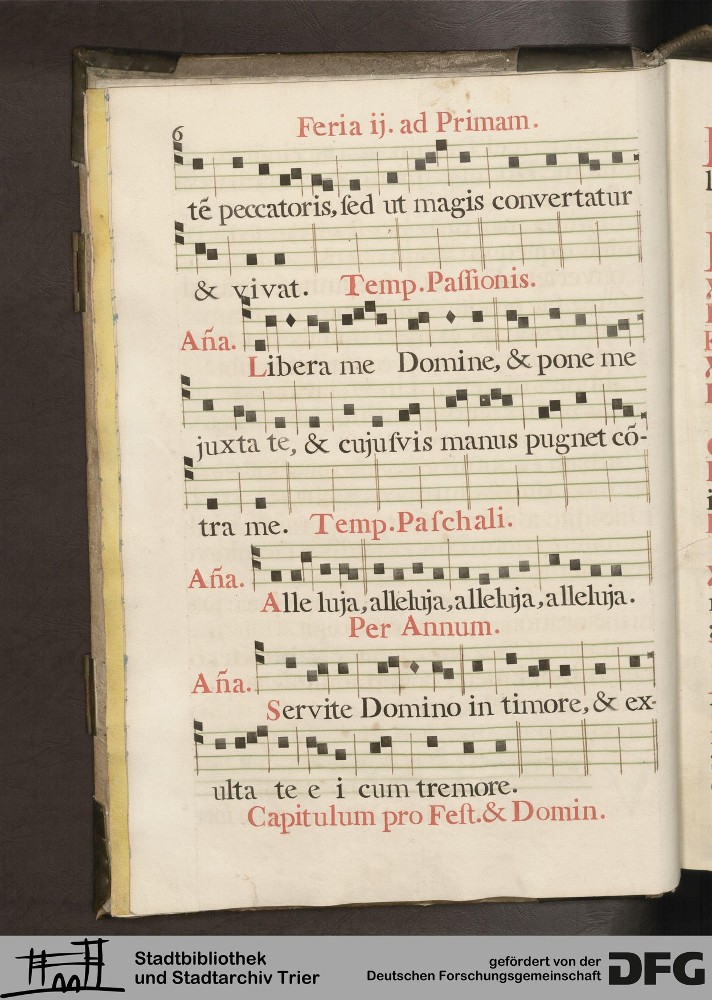 6
Feria ij. ad Primam.
tē peccatoris, ſed ut magis convertatur
& vivat. Temp. Paſſionis.
Aña.
Libera me Domine, & pone me
juxta te, & cujuſvis manus pugnet cō-
tra me. Temp. Paſchali.
Aña.
Alle luja, alleluja, alleluja, alleluja.
Per Annum.
Aña.
Servite Domino in timore, & ex-
ulta te e i cum tremore.
Capitulum pro Feſt. & Domin.
Stadtbibliothek
und Stadtarchiv Trier
gefördert von der
Deutschen Forschungsgemeinschaft
DFG